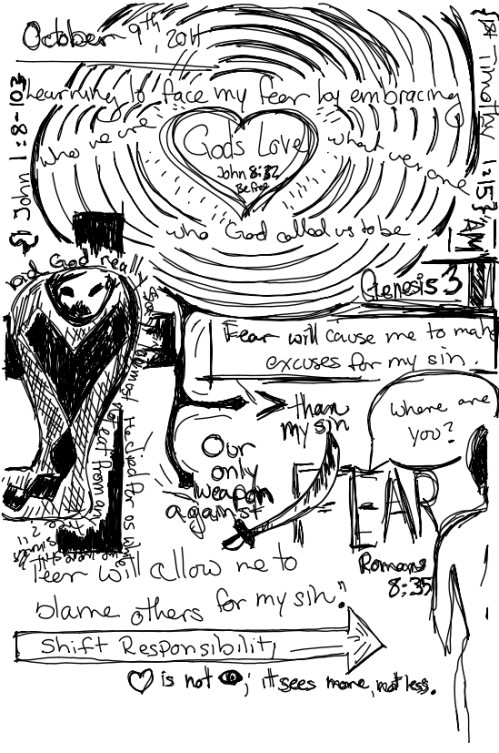 October 9th, 2011
Learning to face my fear by embracing
who we are
Gods Love
what we are
John 8:32
Be Free
who God called us to be.
{1 John 1:8-10}
{1st Timothy 1:15} "AM"
Genesis 3
did God really
say
Fear will cause me to make
excuses for my sin.
>
than
my sin
where are
you?
Our
only
weapon
against
FEAR
Romans
8:35
He died for us while
Fear will allow me to
blame others for my sin."
Shift Responsibility
♡ is not 👁; it sees more, not less.